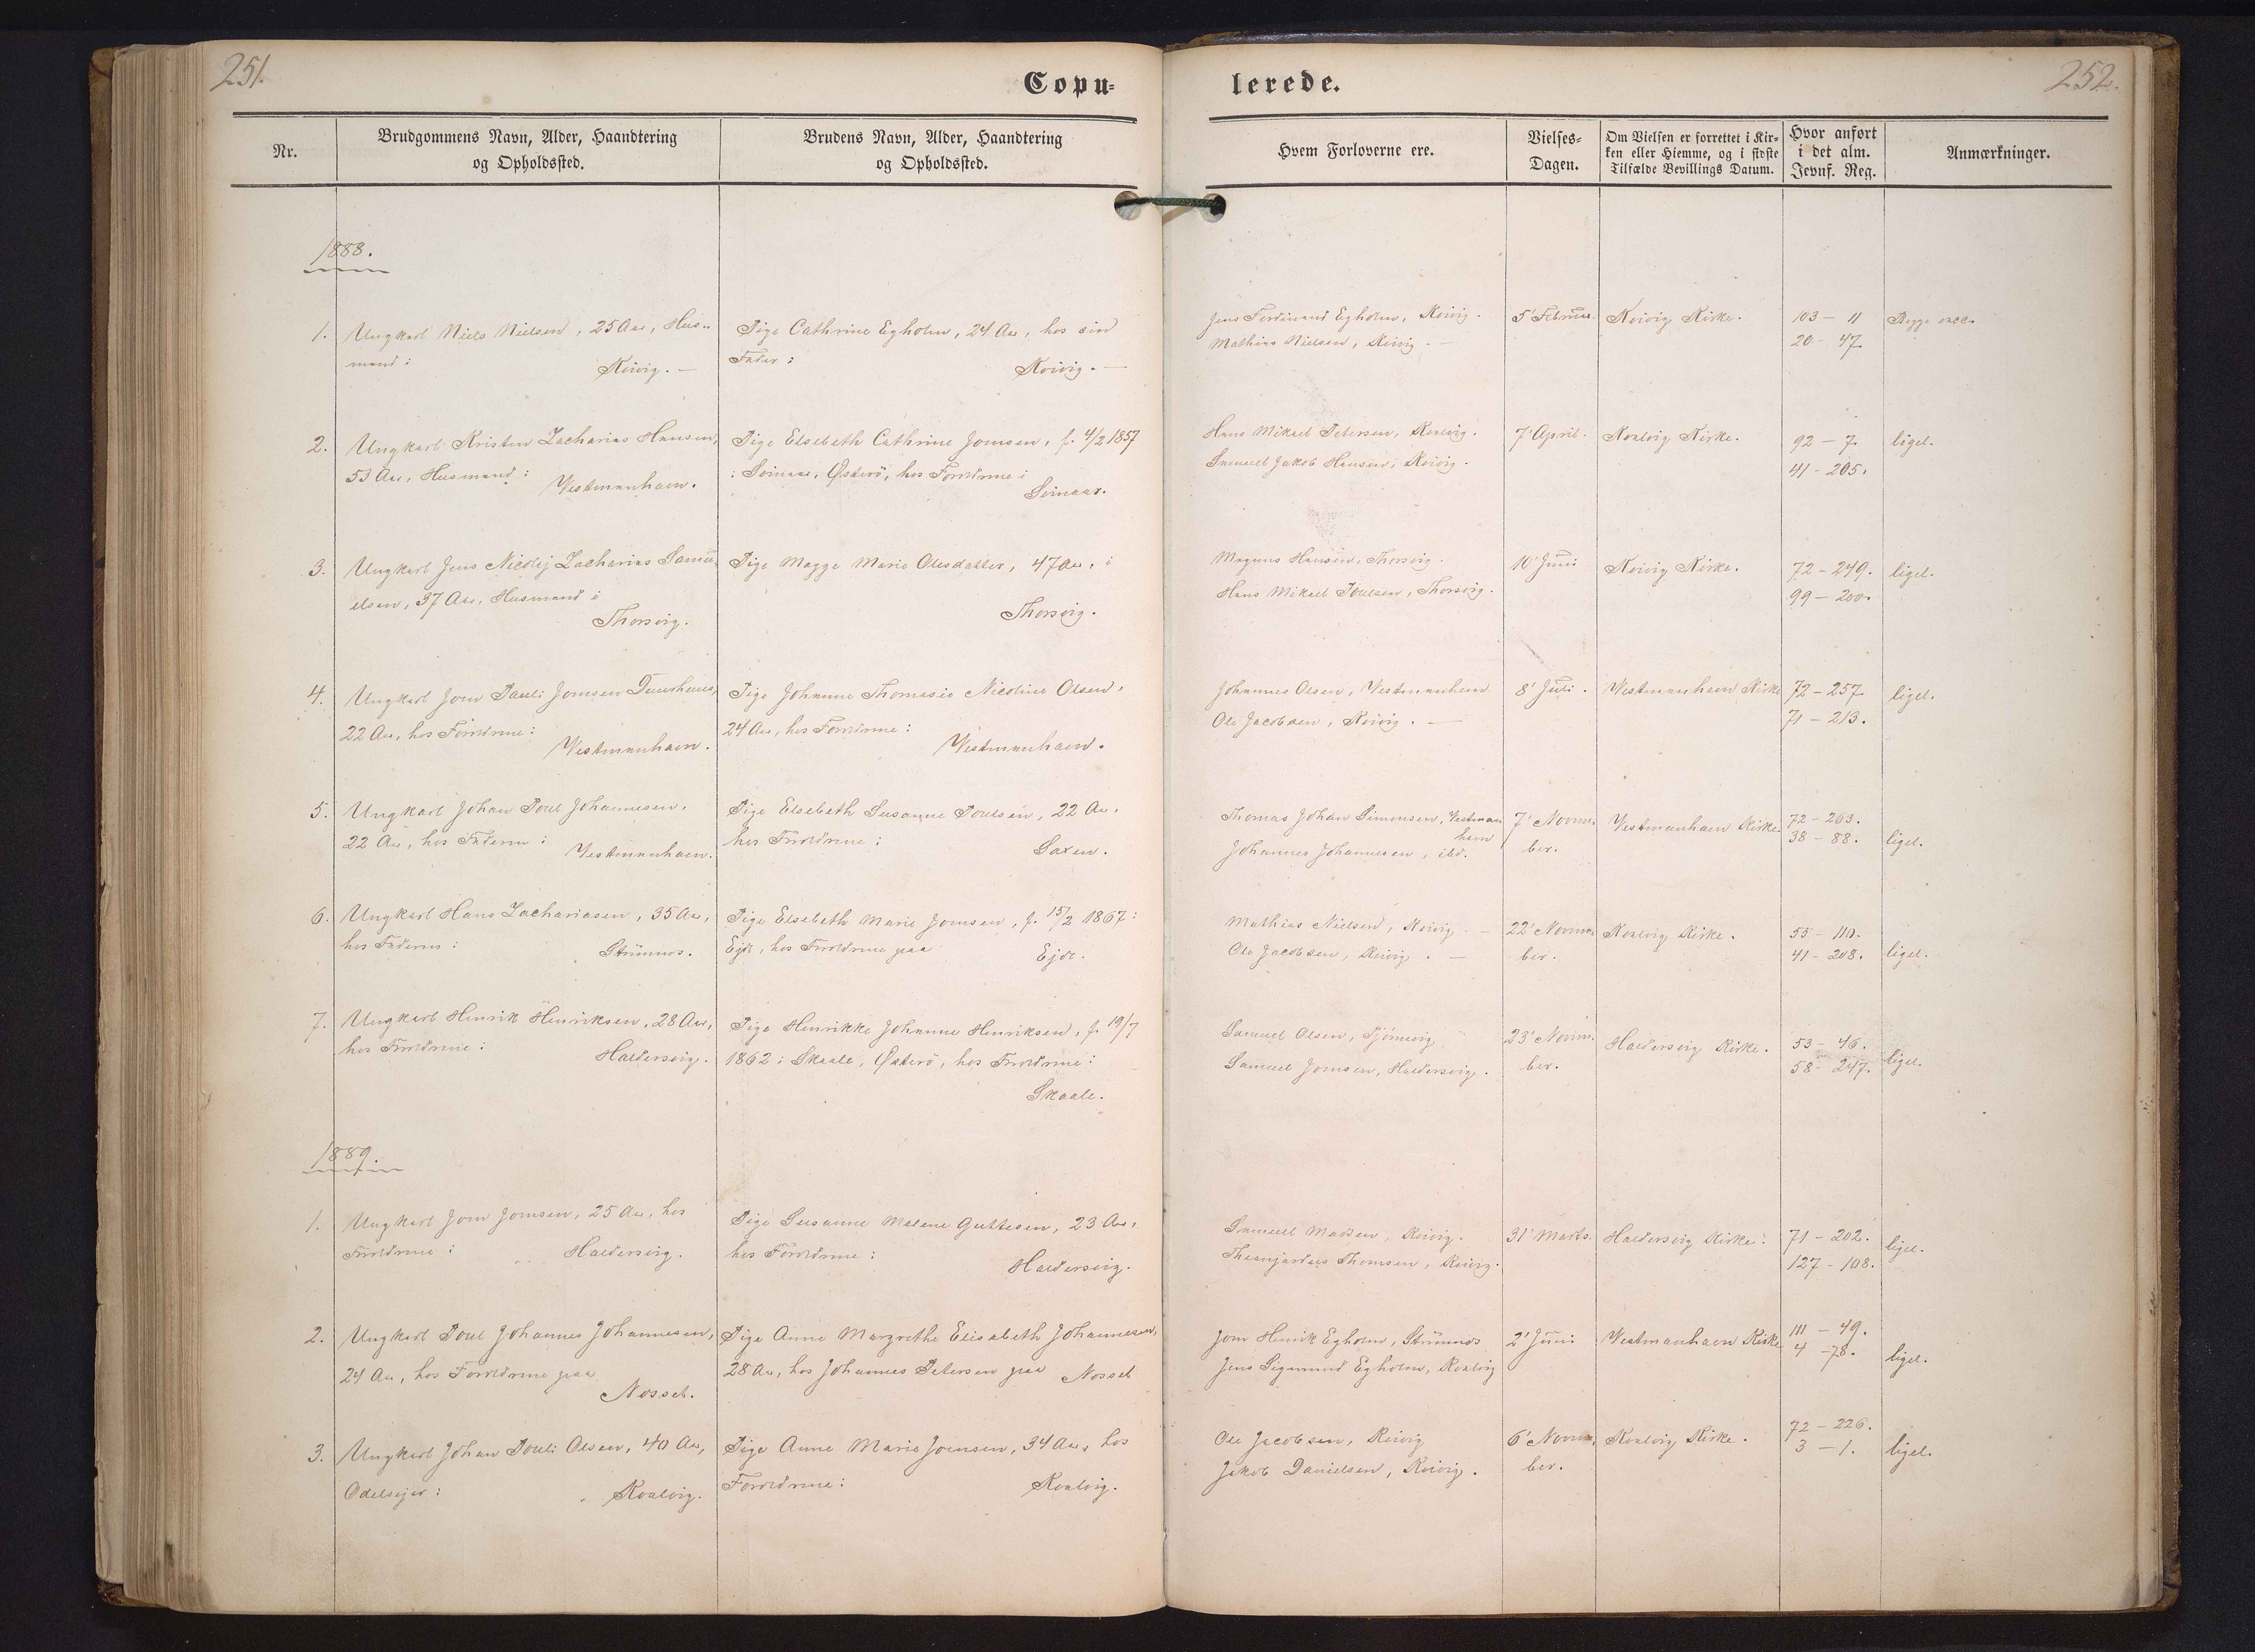 251.
Copu-
lerede.
252.
Nr.
Brudgommens Navn, Alder, Haandtering
og Opholdssted.
Brudens Navn, Alder, Haandtering
og Opholdssted.
Hvem Forloverne ere.
Vielses-
Dagen.
Om Vielsen er forrettet i Kir-
ken eller Hiemme, og i sidste
Tilfælde Bevillings Datum.
Hvor anført
i det alm.
Jevnf. Reg.
Anmærkninger.
1888.
1.
Ungkarl Niels Nielsen, 25 Aar, Hus-
mand i
Kvivig. —
Pige Cathrine Egholm, 24 Aar, hos sin
Fader i
Kvivig. —
Jens Ferdinand Egholm, Kvivig.
Mathias Nielsen, Kvivig. —
5' Februar.
Kvivig Kirke.
103 — 11
20 — 47
Begge vacc.
2.
Ungkarl Kristen Zacharias Hansen,
53 Aar, Husmand i
Vestmanhavn.
Pige Elsebeth Cathrine Joensen, f. 4/2 1857
i Svinaae, Østerö, hos Forældrene i
Svinaar.
Hans Mikael Petersen, Kvalvig.
Samuel Jakob Hansen, Kvivig.
7' April.
Kvalvig Kirke.
92 — 7.
41 — 205.
ligel.
3.
Ungkarl Jens Nicolaj Zacharias Samu-
elsen, 37 Aar, Husmand i
Thorsvig.
Pige Magge Marie Olesdatter, 47 Aar, i
Thorsvig.
Magnus Hansen, Thorsvig.
Hans Mikael Poulsen, Thorsvig.
10' Juni
Kvivig Kirke.
72 — 249.
99 — 200.
ligel.
4.
Ungkarl Joen Pauli Joensen Duurhuus,
22 Aar, hos Forældrene i
Vestmanhavn.
Pige Johanne Thomasie Nicoline Olsen,
24 Aar, hos Forældrene i
Vestmanhavn.
Johannes Olsen, Vestmanhavn
Ole Jacobsen, Kvivig. —
8' Juli.
Vestmanhavn Kirke
72 — 257
71 — 213.
ligel.
5.
Ungkarl Johan Poul Johannesen,
22 Aar, hos Faderen i
Vestmanhavn.
Pige Elsebeth Susanne Poulsen, 22 Aar,
hos Forældrene i
Saxen.
Thomas Johan Simonsen, Vestman-
havn
Johannes Johannesen, ibd.
7' Novem-
ber.
Vestmanhavn Kirke.
72 — 263.
38 — 88.
ligel.
6.
Ungkarl Hans Zachariasen, 35 Aar,
hos Faderen i
Strömnæs.
Pige Elsebeth Marie Joensen, f. 15/2 1867 i
Ejde, hos Forældrene paa
Ejde.
Mathias Nielsen, Kvivig. —
Ole Jacobsen, Kvivig. —
22' Novem-
ber.
Kvalvig Kirke.
55 — 110.
41 — 208.
ligel.
7.
Ungkarl Henrik Henriksen, 28 Aar,
hos Forældrene i
Haldersvig.
Pige Henrikke Johanne Henriksen, f. 19/7
1862 i Skaale, Østerö, hos Forældrene i
Skaale.
Samuel Olsen, Tjörnevig
Samuel Joensen, Haldersvig.
23' Novem-
ber.
Haldersvig Kirke.
53 — 46.
58 — 247.
ligel.
1889.
1.
Ungkarl Joen Joensen, 25 Aar, hos
Forældrene i
Haldersvig.
Pige Susanne Malene Guttesen, 23 Aar,
hos Forældrene i
Haldersvig.
Samuel Madsen, Kvivig.
Thomsen, Kvivig.
31' Marts.
Haldersvig Kirke.
71 — 202.
127 — 108.
ligel.
2.
Ungkarl Poul Johannes Johannesen,
24 Aar, hos Forældrene paa
Nossel.
Pige Anne Margrethe Elisabeth Johannesen,
28 Aar, hos Johannes Petersen paa
Nossel
Joen Henrik Egholm, Strömnæs
Jens Sigmund Egholm, Kvalvig
2' Juni
Vestmanhavn Kirke
111 — 49.
4 — 78.
ligel.
3.
Ungkarl Johan Pouli Olsen, 40 Aar,
Odelsejer i
Kvalvig.
Pige Anne Marie Joensen, 34 Aar, hos
Forældrene i
Kvalvig.
Ole Jacobsen, Kvivig
Jakob Danielsen, Kvivig.
6' Novem-
ber.
Kvalvig Kirke.
72 — 226.
3 — 1.
ligel.